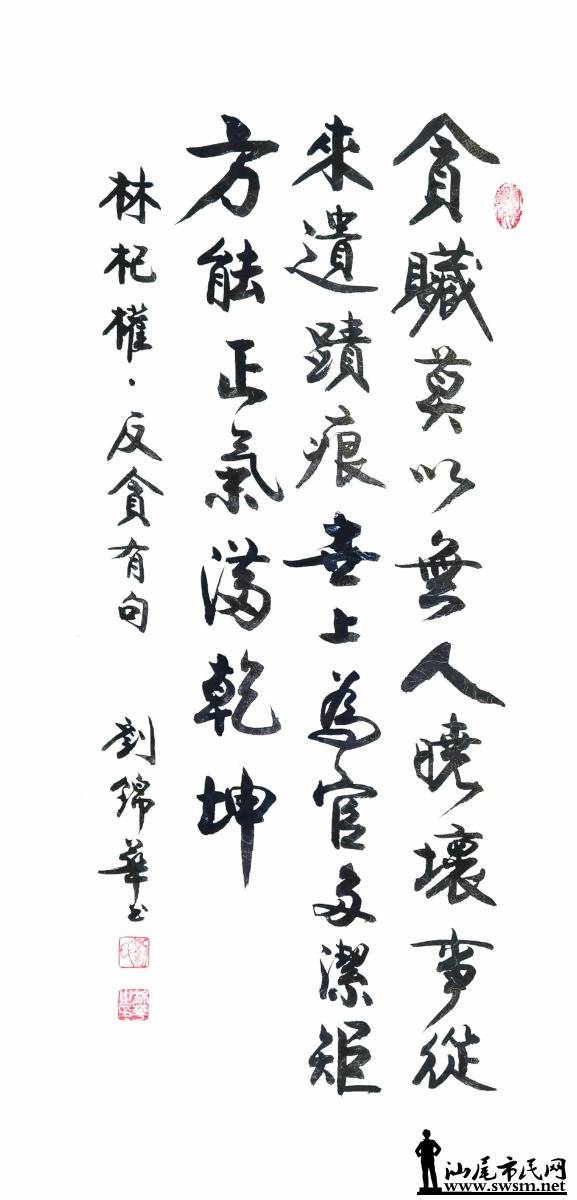 貪贓莫以無人曉壞事從
來遺蹟痕世上為官多潔矩
方能正氣滿乾坤
林杞權·反貪有句 劉錦華书
汕尾市民网
www.swsm.net